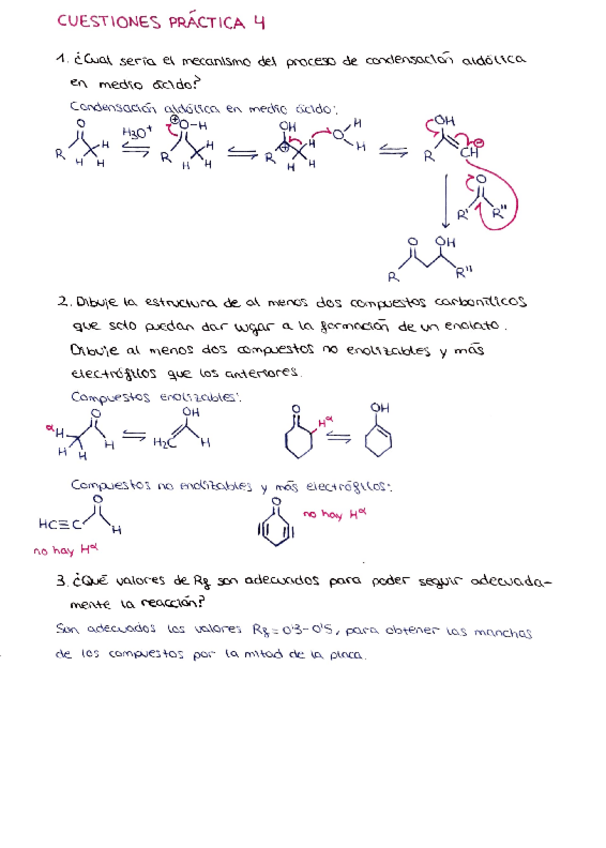 CUESTIONES PRÁCTICA 4
1. ¿Cual sería el mecanismo del proceso de condensación aldólica
en medio ácido?
Condensación aldólica en medio ácido:
O R H H H
H3O+
⊕ O-H R H H H
OH ⊕ R H H H
O H H
OH R CH ⊖
O R' R"
O OH R R"
2. Dibuje la estructura de al menos dos compuestos carbonílicos
que solo puedan dar lugar a la formación de un enolato.
Dibuje al menos dos compuestos no enolizables y más
electrófilos que los anteriores.
Compuestos enolizables:
O αH H H H
OH H2C H
O Hα
OH
Compuestos no enolizables y más electrófilos:
O HC≡C H
no hay Hα
O
no hay Hα
3. ¿Qué valores de Rf son adecuados para poder seguir adecuada-
mente la reacción?
Son adecuados los valores Rf = 0'3-0'5, para obtener las manchas
de los compuestos por la mitad de la placa.